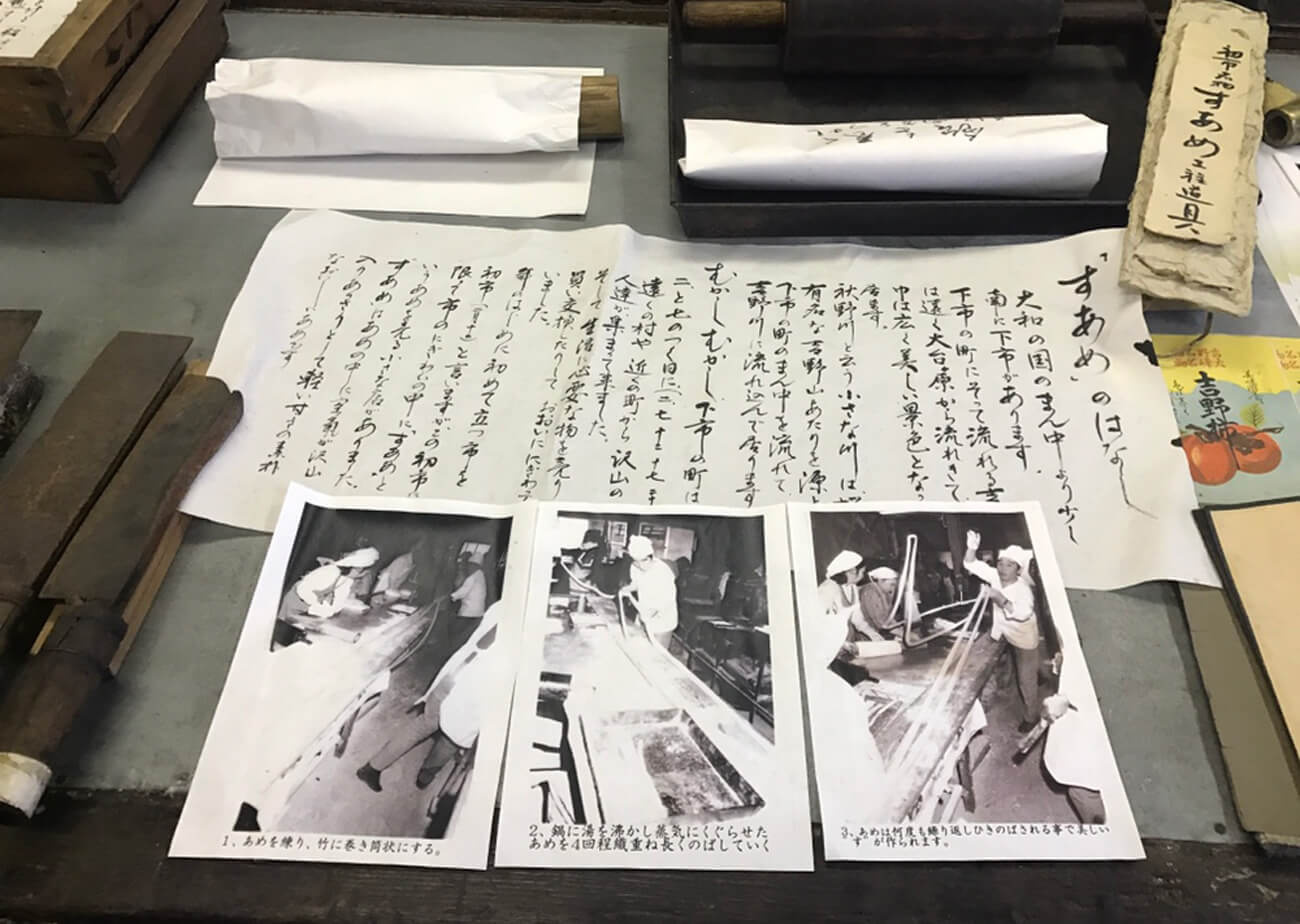 初市名物
すあめ工程道具
「すあめ」のはなし
大和の国のまん中より少し
南に下市があります。
下市の町にそって流れる吉
は遠く大台原から流れきて
中は広く美しい景色となっ
居ます。
秋野川と云う小さな川は
有名な吉野山あたりを源と
下市の町のまん中を流れて、
吉野川に流れ込んで居ります
むかしむかし下市の町は
二と七のつく日に(二、七、十二、十七、二十
遠くの村や近くの町から沢山の
人達が集まって来ました。
そして生活に必要な物を売り
買い交換したりして おおいににぎわっ
いました。
新年はじめに初めて立つ市を
初市(一月十二日)と言いますが、この初市に
限って市のにぎわいの中に、すあめと
いうあめを売る小さな店がありました。
すあめはあめの中に空気が沢山
入りあっさりとして軽い甘さの素朴
なおいしいあめです
吉野柿
1、あめを練り、竹に巻き筒状にする。
2、鍋に湯を沸かし蒸気にくぐらせた
あめを4回程織重ね長くのばしていく
3、あめは何度も練り返しひきのばされる事で美しい
す が作られます。